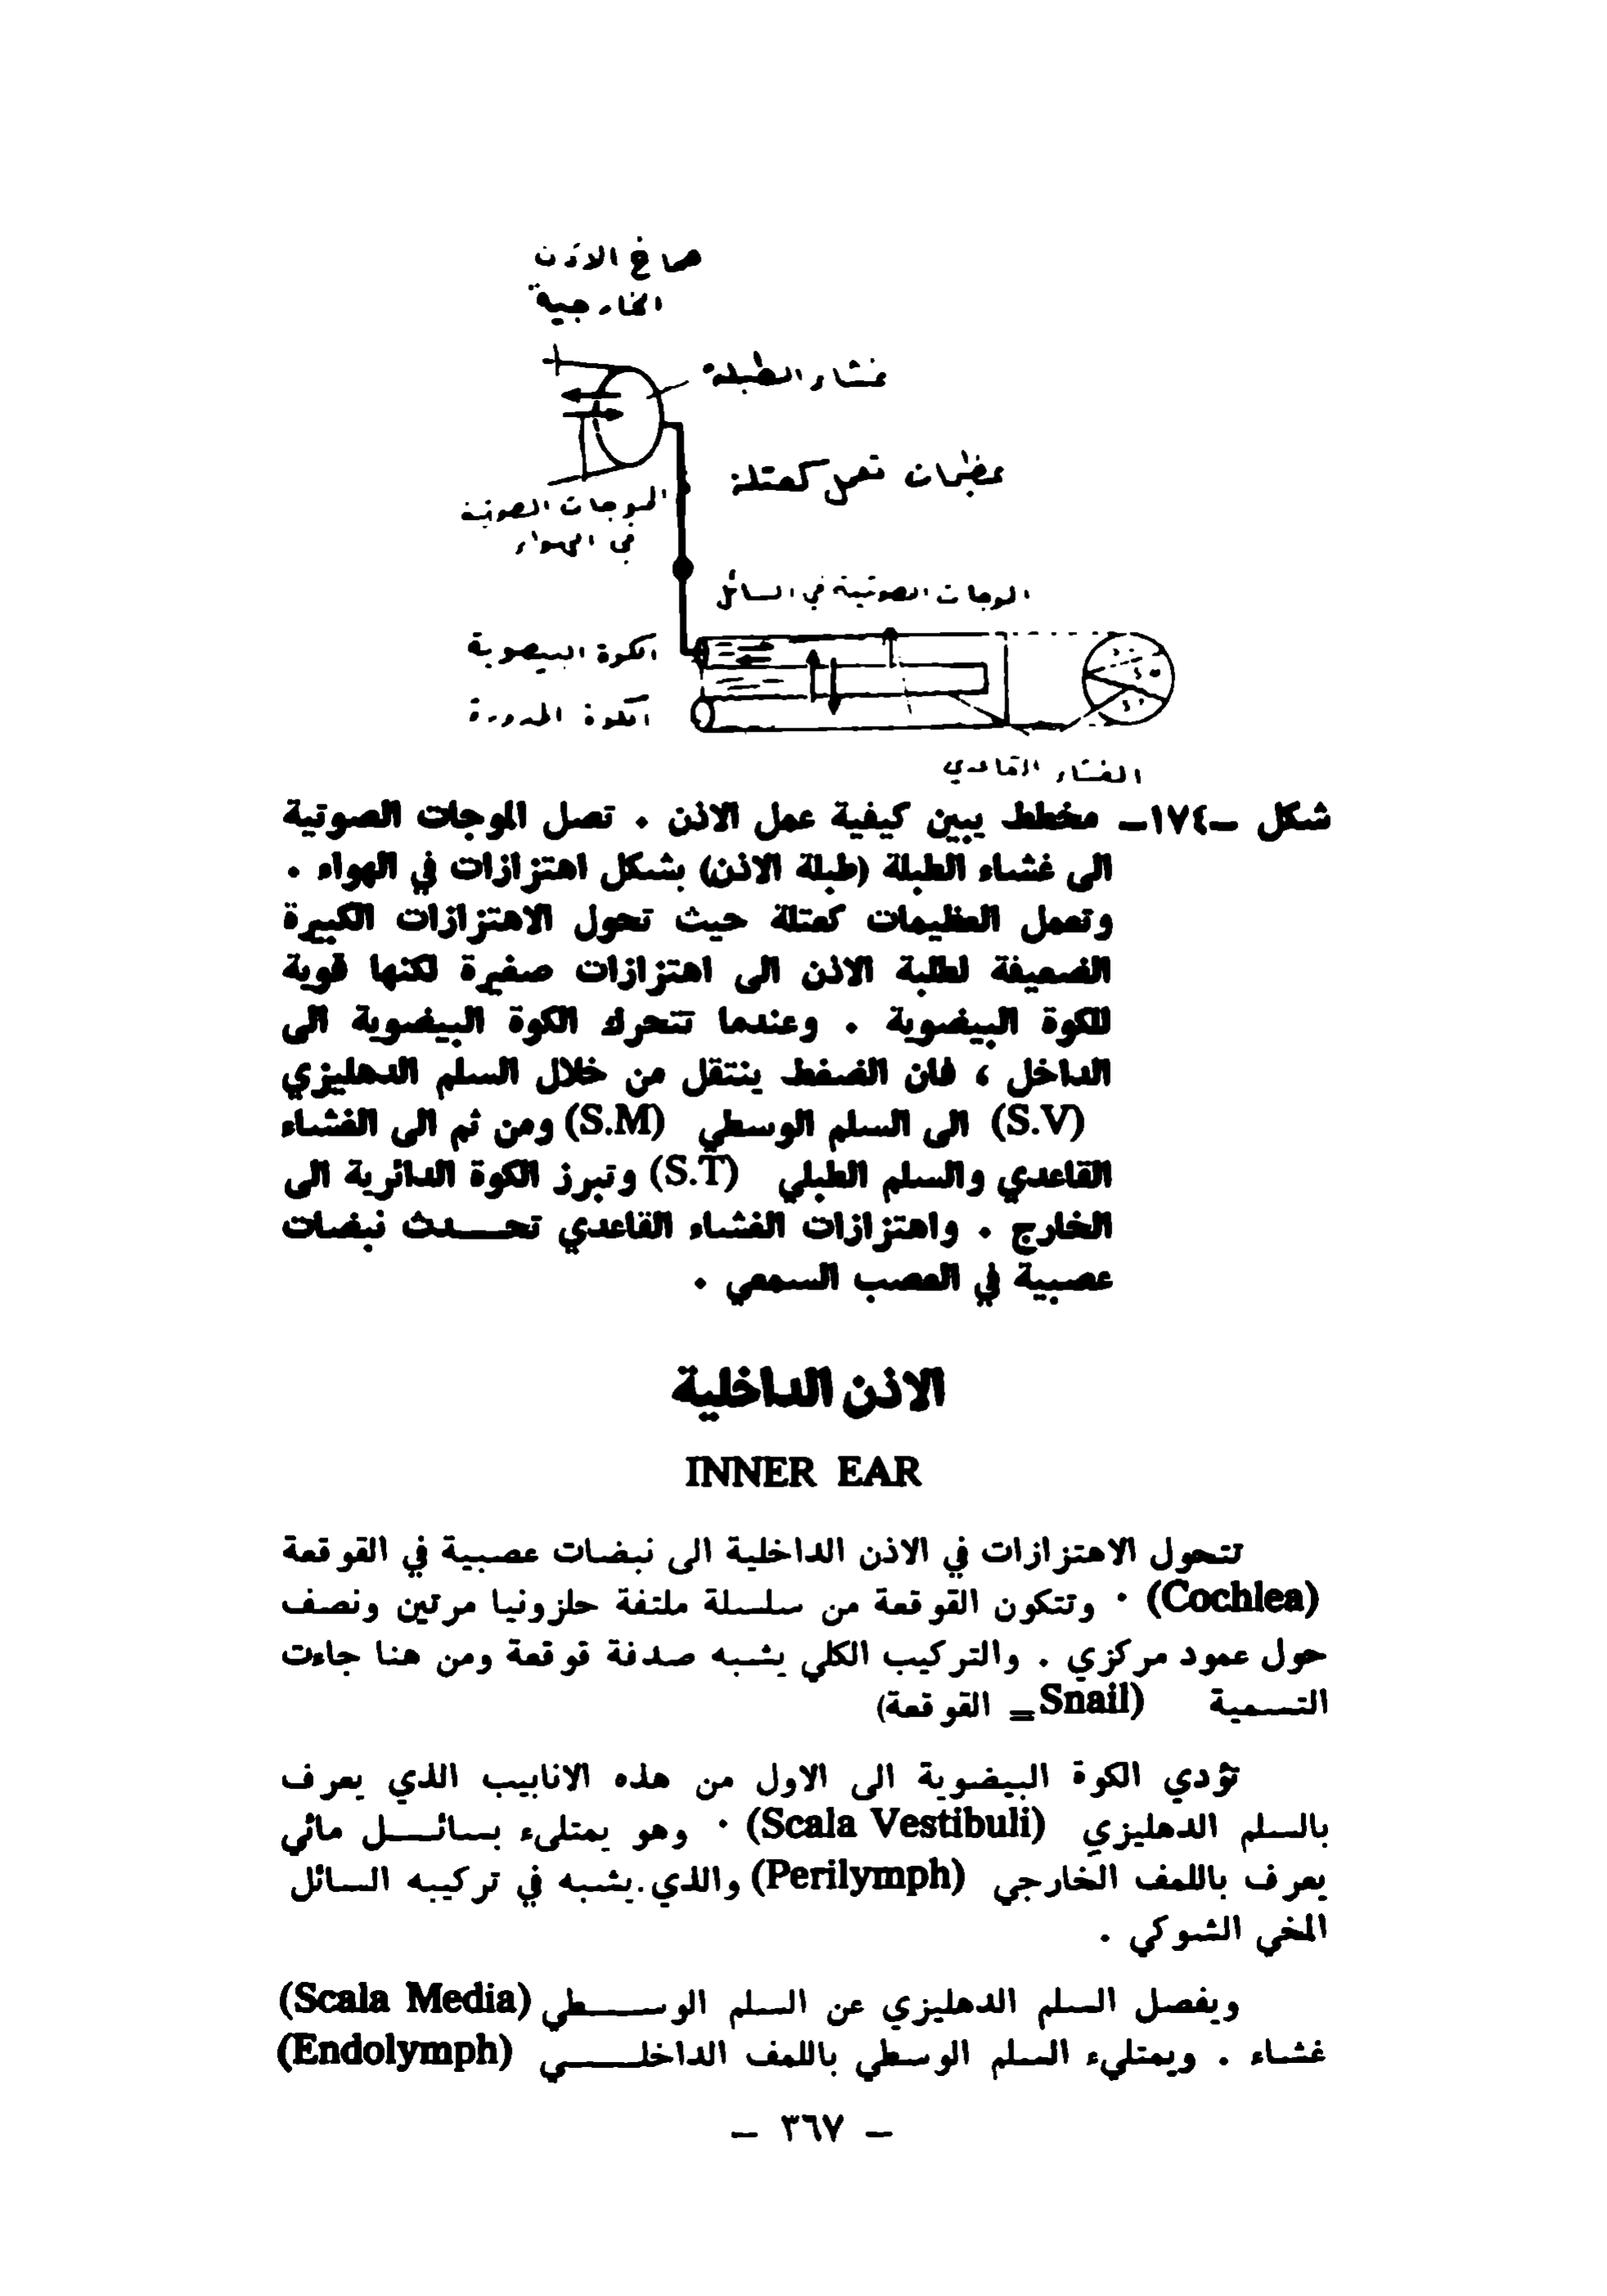 صماخ الاذن
الخارجية
غشاء الطبلة
عظيمات تعمل كعتلة
الموجات الصوتية
في الهواء
الموجات الصوتية في السائل
الكوة البيضوية
الكوة المدورة
الغشاء القاعدي
شكل -١٧٤- مخطط يبين كيفية عمل الاذن . تصل الموجات الصوتية
الى غشاء الطبلة (طبلة الاذن) بشكل اهتزازات في الهواء .
وتعمل العظيمات كعتلة حيث تحول الاهتزازات الكبيرة
الضعيفة لطلبة الاذن الى اهتزازات صغيرة لكنها قوية
للكوة البيضوية . وعندما تتحرك الكوة البيضوية الى
الداخل ، فان الضغط ينتقل من خلال السلم الدهليزي
(S.V) الى السلم الوسطي (S.M) ومن ثم الى الغشاء
القاعدي والسلم الطبلي (S.T) وتبرز الكوة الدائرية الى
الخارج . واهتزازات الغشاء القاعدي تحدث نبضات
عصبية في العصب السمعي .
الاذن الداخلية
INNER EAR
تتحول الاهتزازات في الاذن الداخلية الى نبضات عصبية في القوقعة
(Cochlea) . وتتكون القوقعة من سلسلة ملتفة حلزونيا مرتين ونصف
حول عمود مركزي . والتركيب الكلي يشبه صدفة قوقعة ومن هنا جاءت
التسمية (Snail = القوقعة)
تؤدي الكوة البيضوية الى الاول من هذه الانابيب الذي يعرف
بالسلم الدهليزي (Scala Vestibuli) . وهو يمتلىء بسائل مائي
يعرف باللمف الخارجي (Perilymph) والذي يشبه في تركيبه السائل
المخي الشوكي .
ويفصل السلم الدهليزي عن السلم الوسطي (Scala Media)
غشاء . ويمتلىء السلم الوسطي باللمف الداخلي (Endolymph)
- ٣٦٧ -